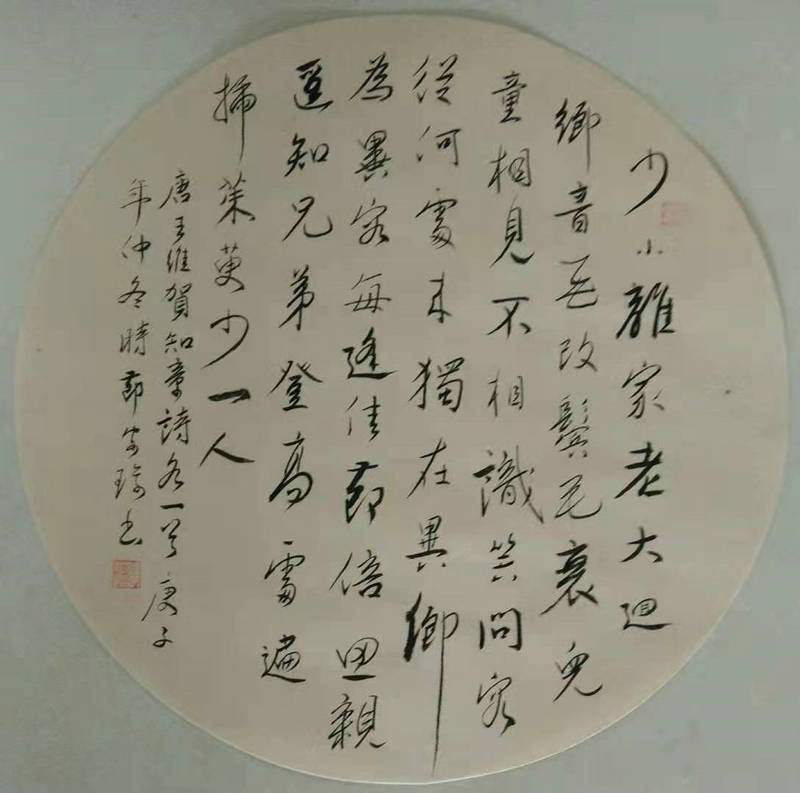 少小離家老大迴
鄉音無改鬢毛衰兒
童相見不相識笑問客
從何處來獨在異鄉
為異客每逢佳節倍思親
遥知兄弟登高處遍
插茱萸少一人
唐王維賀知章詩各一首庚子
年仲冬時節安瑜書